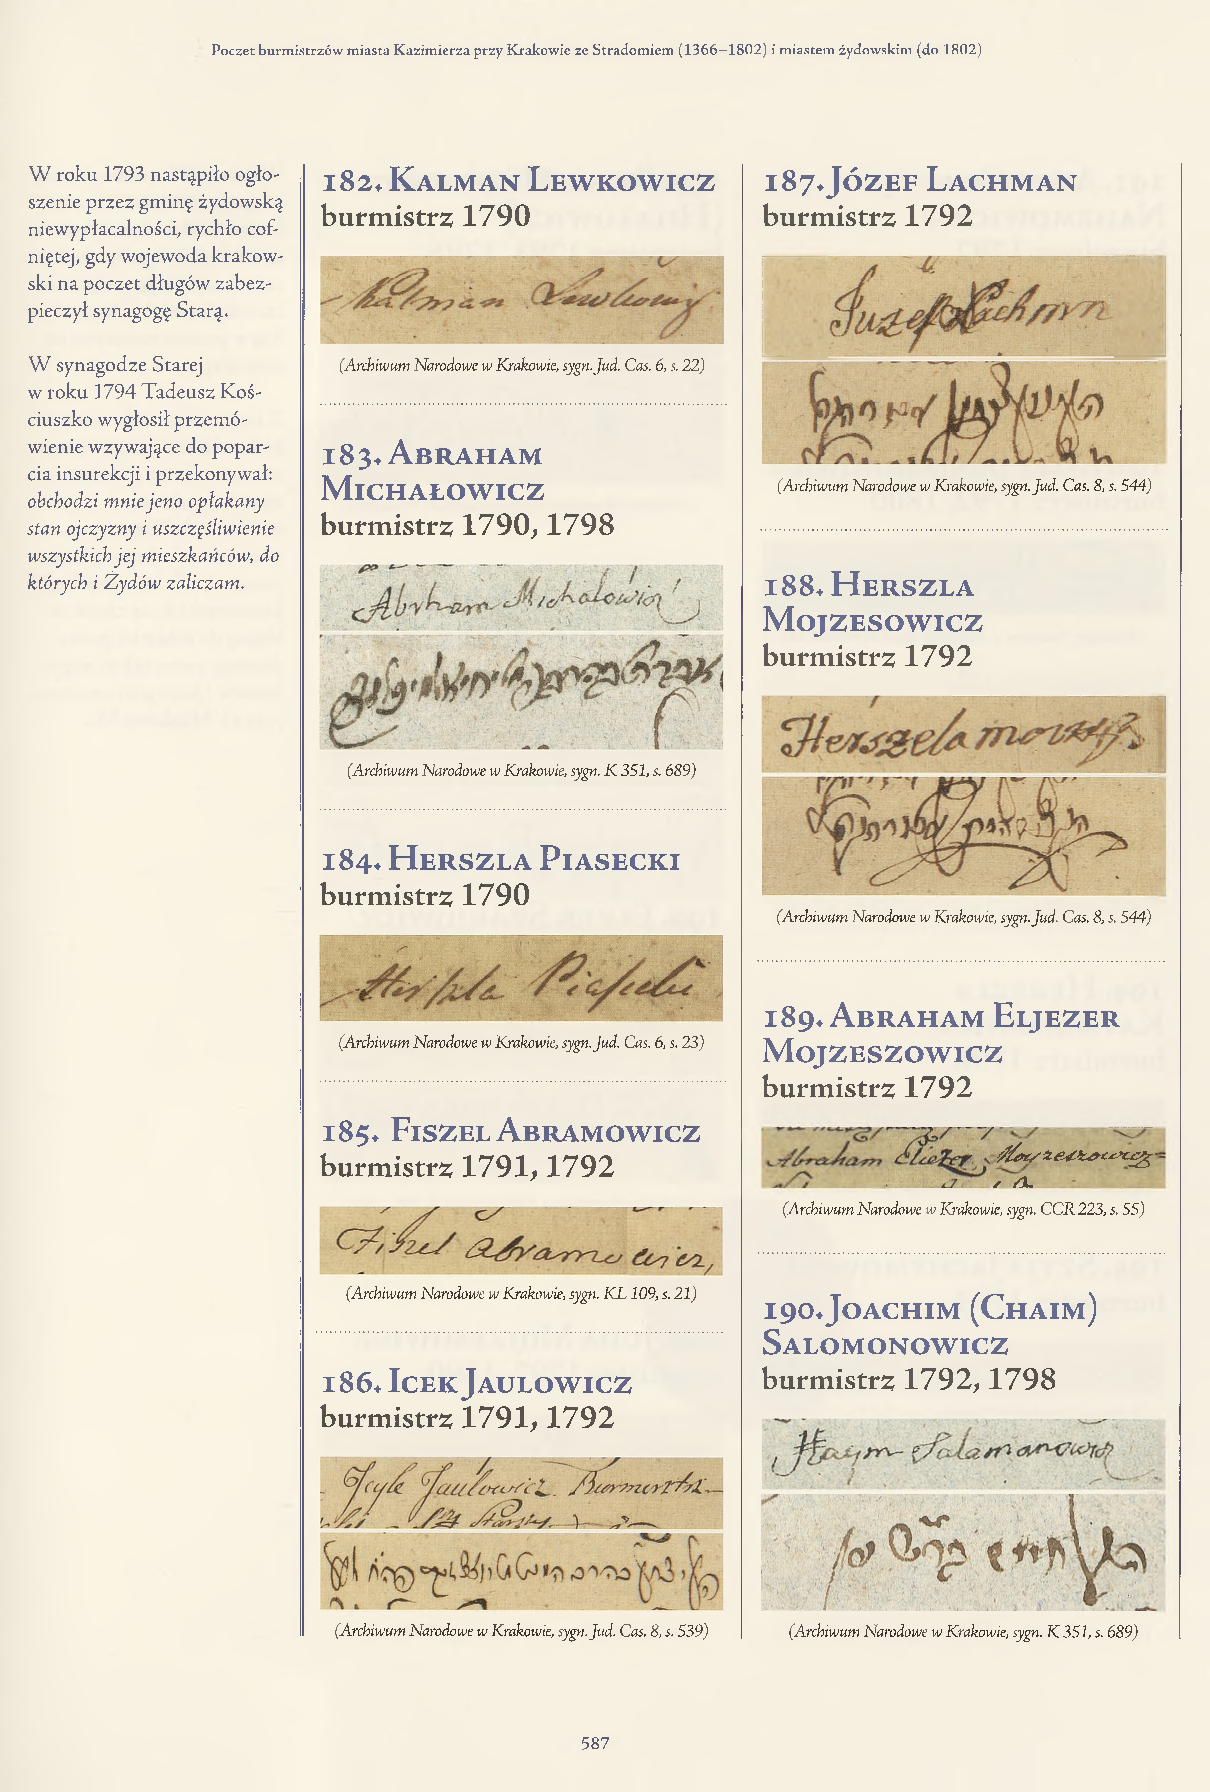 Poczet burmistrzów miasta Kazimierza przy Krakowie ze Stradomiem (1366–1802) i miastem żydowskim (do 1802)
W roku 1793 nastąpiło ogło-
szenie przez gminę żydowską
niewypłacalności, rychło cof-
niętej, gdy wojewoda krakow-
ski na poczet długów zabez-
pieczył synagogę Starą.
W synagodze Starej
w roku 1794 Tadeusz Koś-
ciuszko wygłosił przemó-
wienie wzywające do popar-
cia insurekcji i przekonywał:
obchodzi mnie jeno opłakany
stan ojczyzny i uszczęśliwienie
wszystkich jej mieszkańców, do
których i Żydów zaliczam.
182. Kalman Lewkowicz
burmistrz 1790
Kalman Lewkowicz
(Archiwum Narodowe w Krakowie, sygn. Jud. Cas. 6, s. 22)
183. Abraham
Michałowicz
burmistrz 1790, 1798
Abrham Michalowicz
(Archiwum Narodowe w Krakowie, sygn. K 351, s. 689)
184. Herszla Piasecki
burmistrz 1790
Herszla Piasecki
(Archiwum Narodowe w Krakowie, sygn. Jud. Cas. 6, s. 23)
185. Fiszel Abramowicz
burmistrz 1791, 1792
Fiszel Abramowicz,
(Archiwum Narodowe w Krakowie, sygn. KL 109, s. 21)
186. Icek Jaulowicz
burmistrz 1791, 1792
Jaulowicz Burmistrz
(Archiwum Narodowe w Krakowie, sygn. Jud. Cas. 8, s. 539)
187. Józef Lachman
burmistrz 1792
Juzef Lachmn
(Archiwum Narodowe w Krakowie, sygn. Jud. Cas. 8, s. 544)
188. Herszla
Mojzesowicz
burmistrz 1792
Herszela
(Archiwum Narodowe w Krakowie, sygn. Jud. Cas. 8, s. 544)
189. Abraham Eljezer
Mojzeszowicz
burmistrz 1792
Abraham Eliezer Moyzeszowicz
(Archiwum Narodowe w Krakowie, sygn. CCR 223, s. 55)
190. Joachim (Chaim)
Salomonowicz
burmistrz 1792, 1798
Haym Salamanowicz
(Archiwum Narodowe w Krakowie, sygn. K 351, s. 689)
587